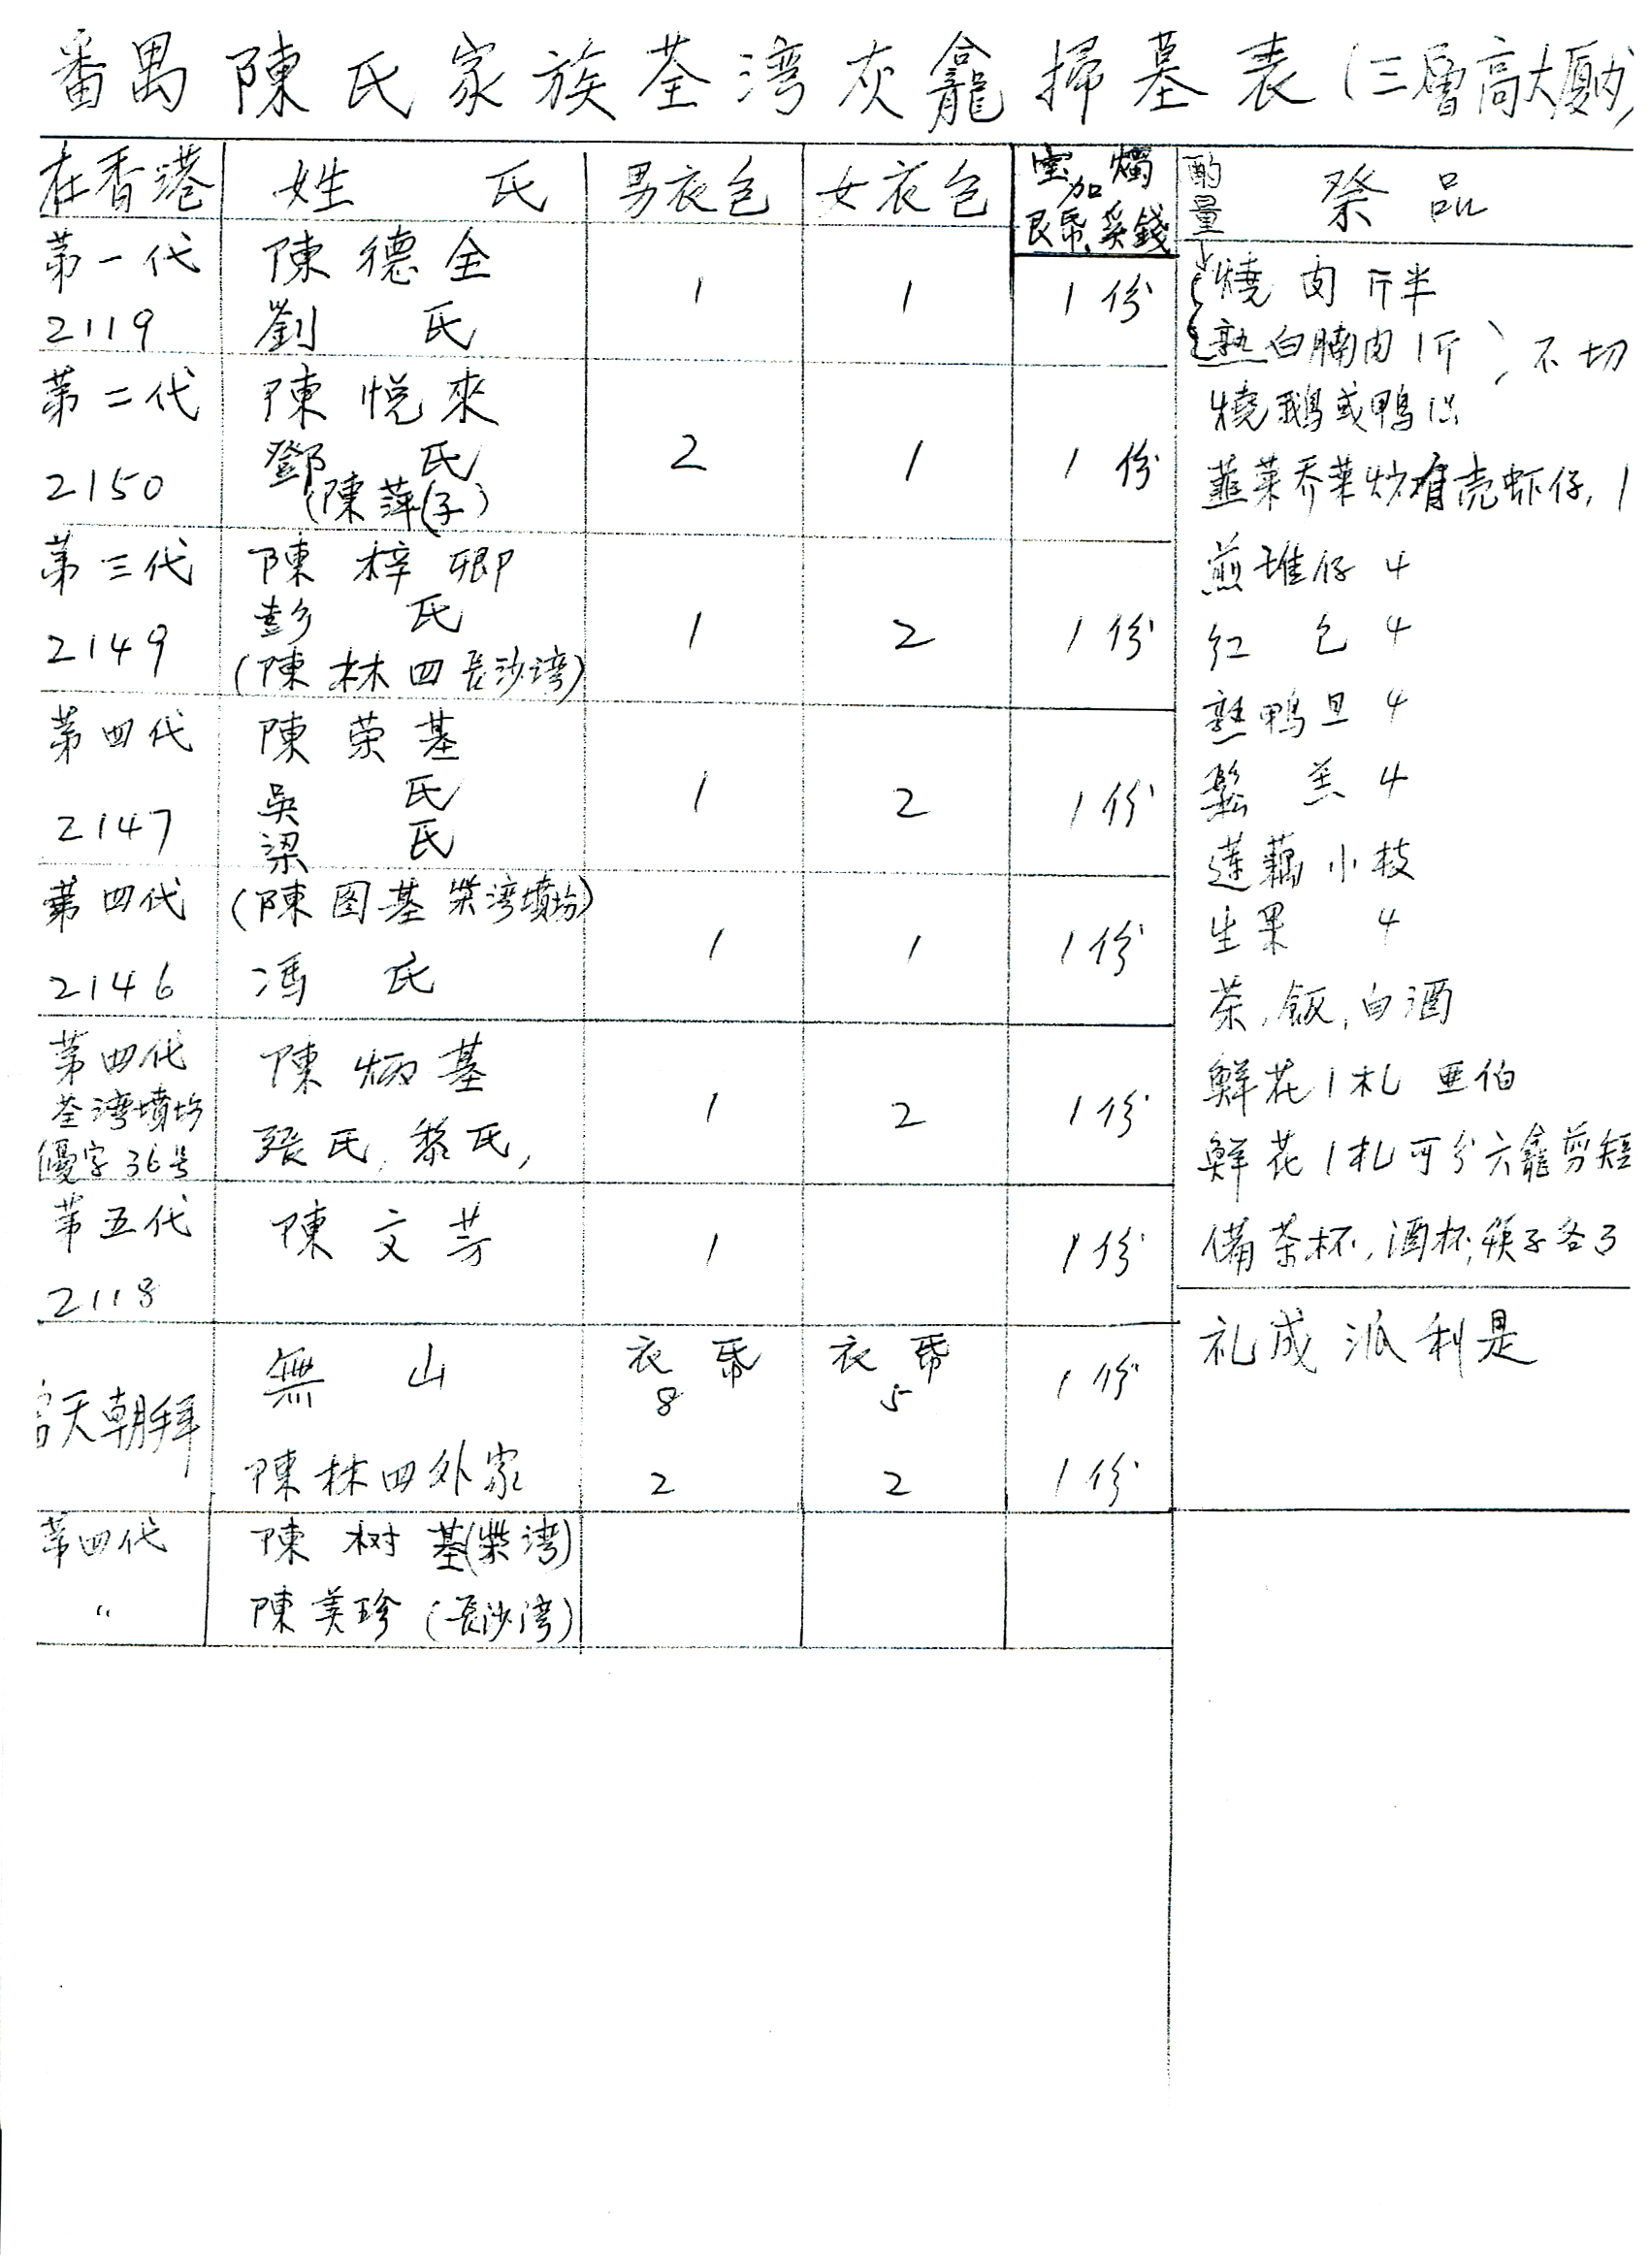 番禺陳氏家族荃湾灰龕掃墓表(三層高大廈)
在香港 姓 氏 男衣包 女衣包 燭 加 艮帛, 奚錢 酌量 祭品
第一代 陳德全
2119 劉 氏 1 1 1份
第二代 陳悦來
2150 鄧 氏 2 1 1份
(陳萍(子)
第三代 陳梓卿
2149 彭 氏 1 2 1份
(陳林四長沙湾)
第四代 陳荣基
2147 吳 氏 1 2 1份
梁 氏
第四代 (陳图基柴湾墳场)
2146 馮 氏 1 1 1份
第四代 陳炳基
荃湾墳场
優字36号 張氏, 黎氏, 1 2 1份
第五代 陳文芳
2118 1 1份
無 山 衣帋 8 衣帋 5 1份
天朝拜
陳林四外家 2 2 1份
第四代 陳树基(柴湾)
〃 陳美珍(長沙湾)
燒肉斤半
熟白腩肉1斤, 不切
燒鵝或鴨1只
韮菜乔菜炒有壳虾仔, 1
煎堆仔 4
红包 4
熟鴨旦 4
鬆羔 4
蓮藕小枝
生果 4
茶, 飯, 白酒
鮮花1札 亜伯
鮮花1札可分六龕剪短
備茶杯, 酒杯, 筷子各3
礼成派利是